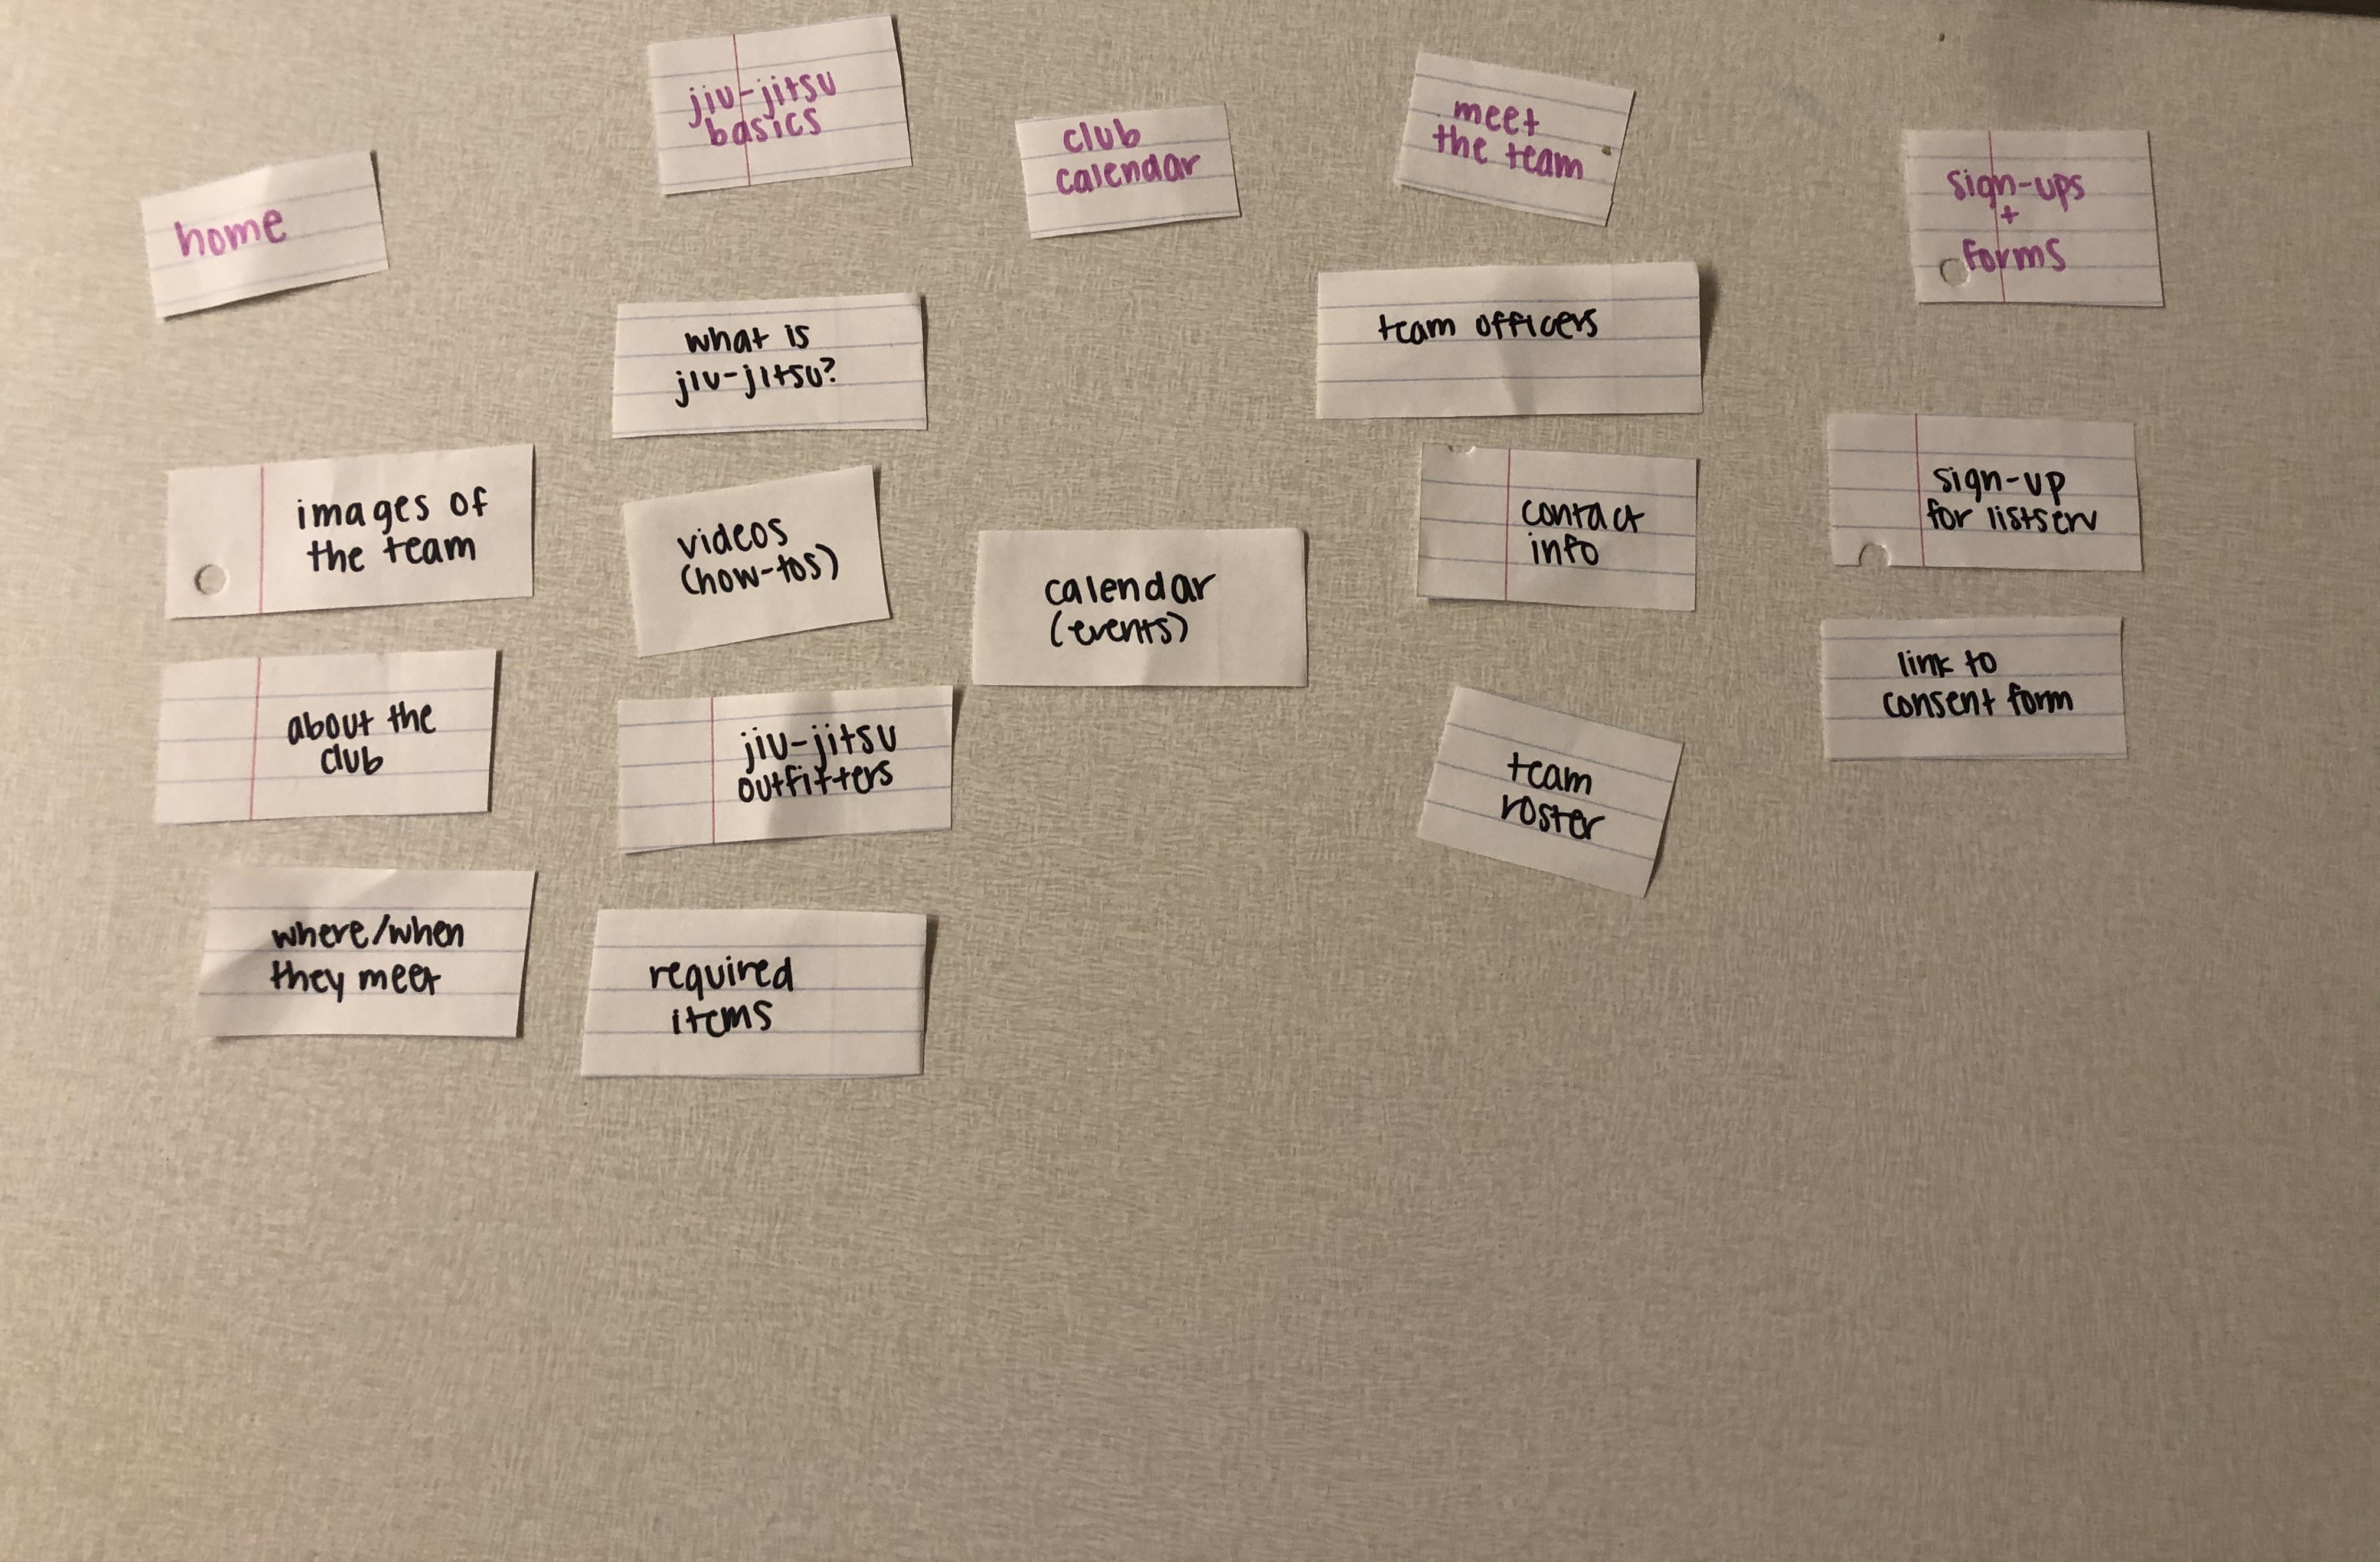 home
images of
the team
about the
club
where/when
they meet
jiu-jitsu
basics
what is
jiu-jitsu?
videos
(how-tos)
jiu-jitsu
outfitters
required
items
club
calendar
calendar
(events)
meet
the team
team officers
contact
info
team
roster
sign-ups
+
forms
sign-up
for listserv
link to
consent form